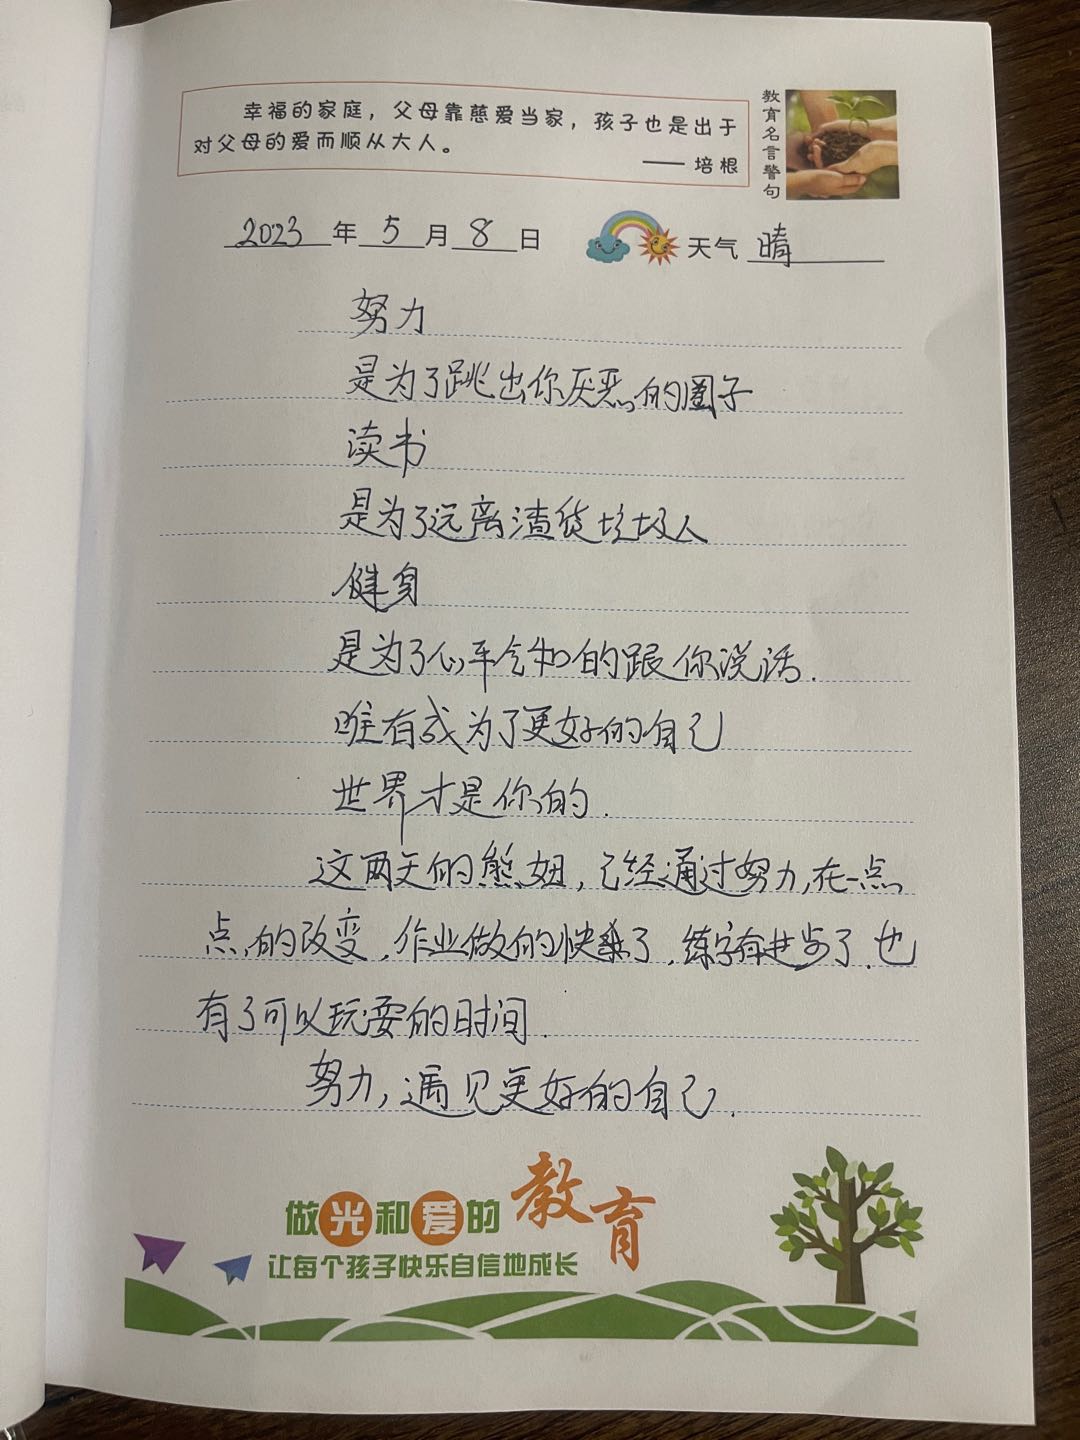 幸福的家庭，父母靠慈爱当家，孩子也是出于
对父母的爱而顺从大人。
—— 培根
教育名言警句
2023年5月8日
天气 晴
努力
是为了跳出你厌恶的圈子
读书
是为了远离渣货垃圾人
健身
是为了心平气和的跟你说话.
唯有成为了更好的自己
世界才是你的.
这两天的熊妞，已经通过努力,在一点
点的改变,作业做的快了,练字有进步了.也
有了可以玩耍的时间.
努力,遇见更好的自己.
做光和爱的教育
让每个孩子快乐自信地成长